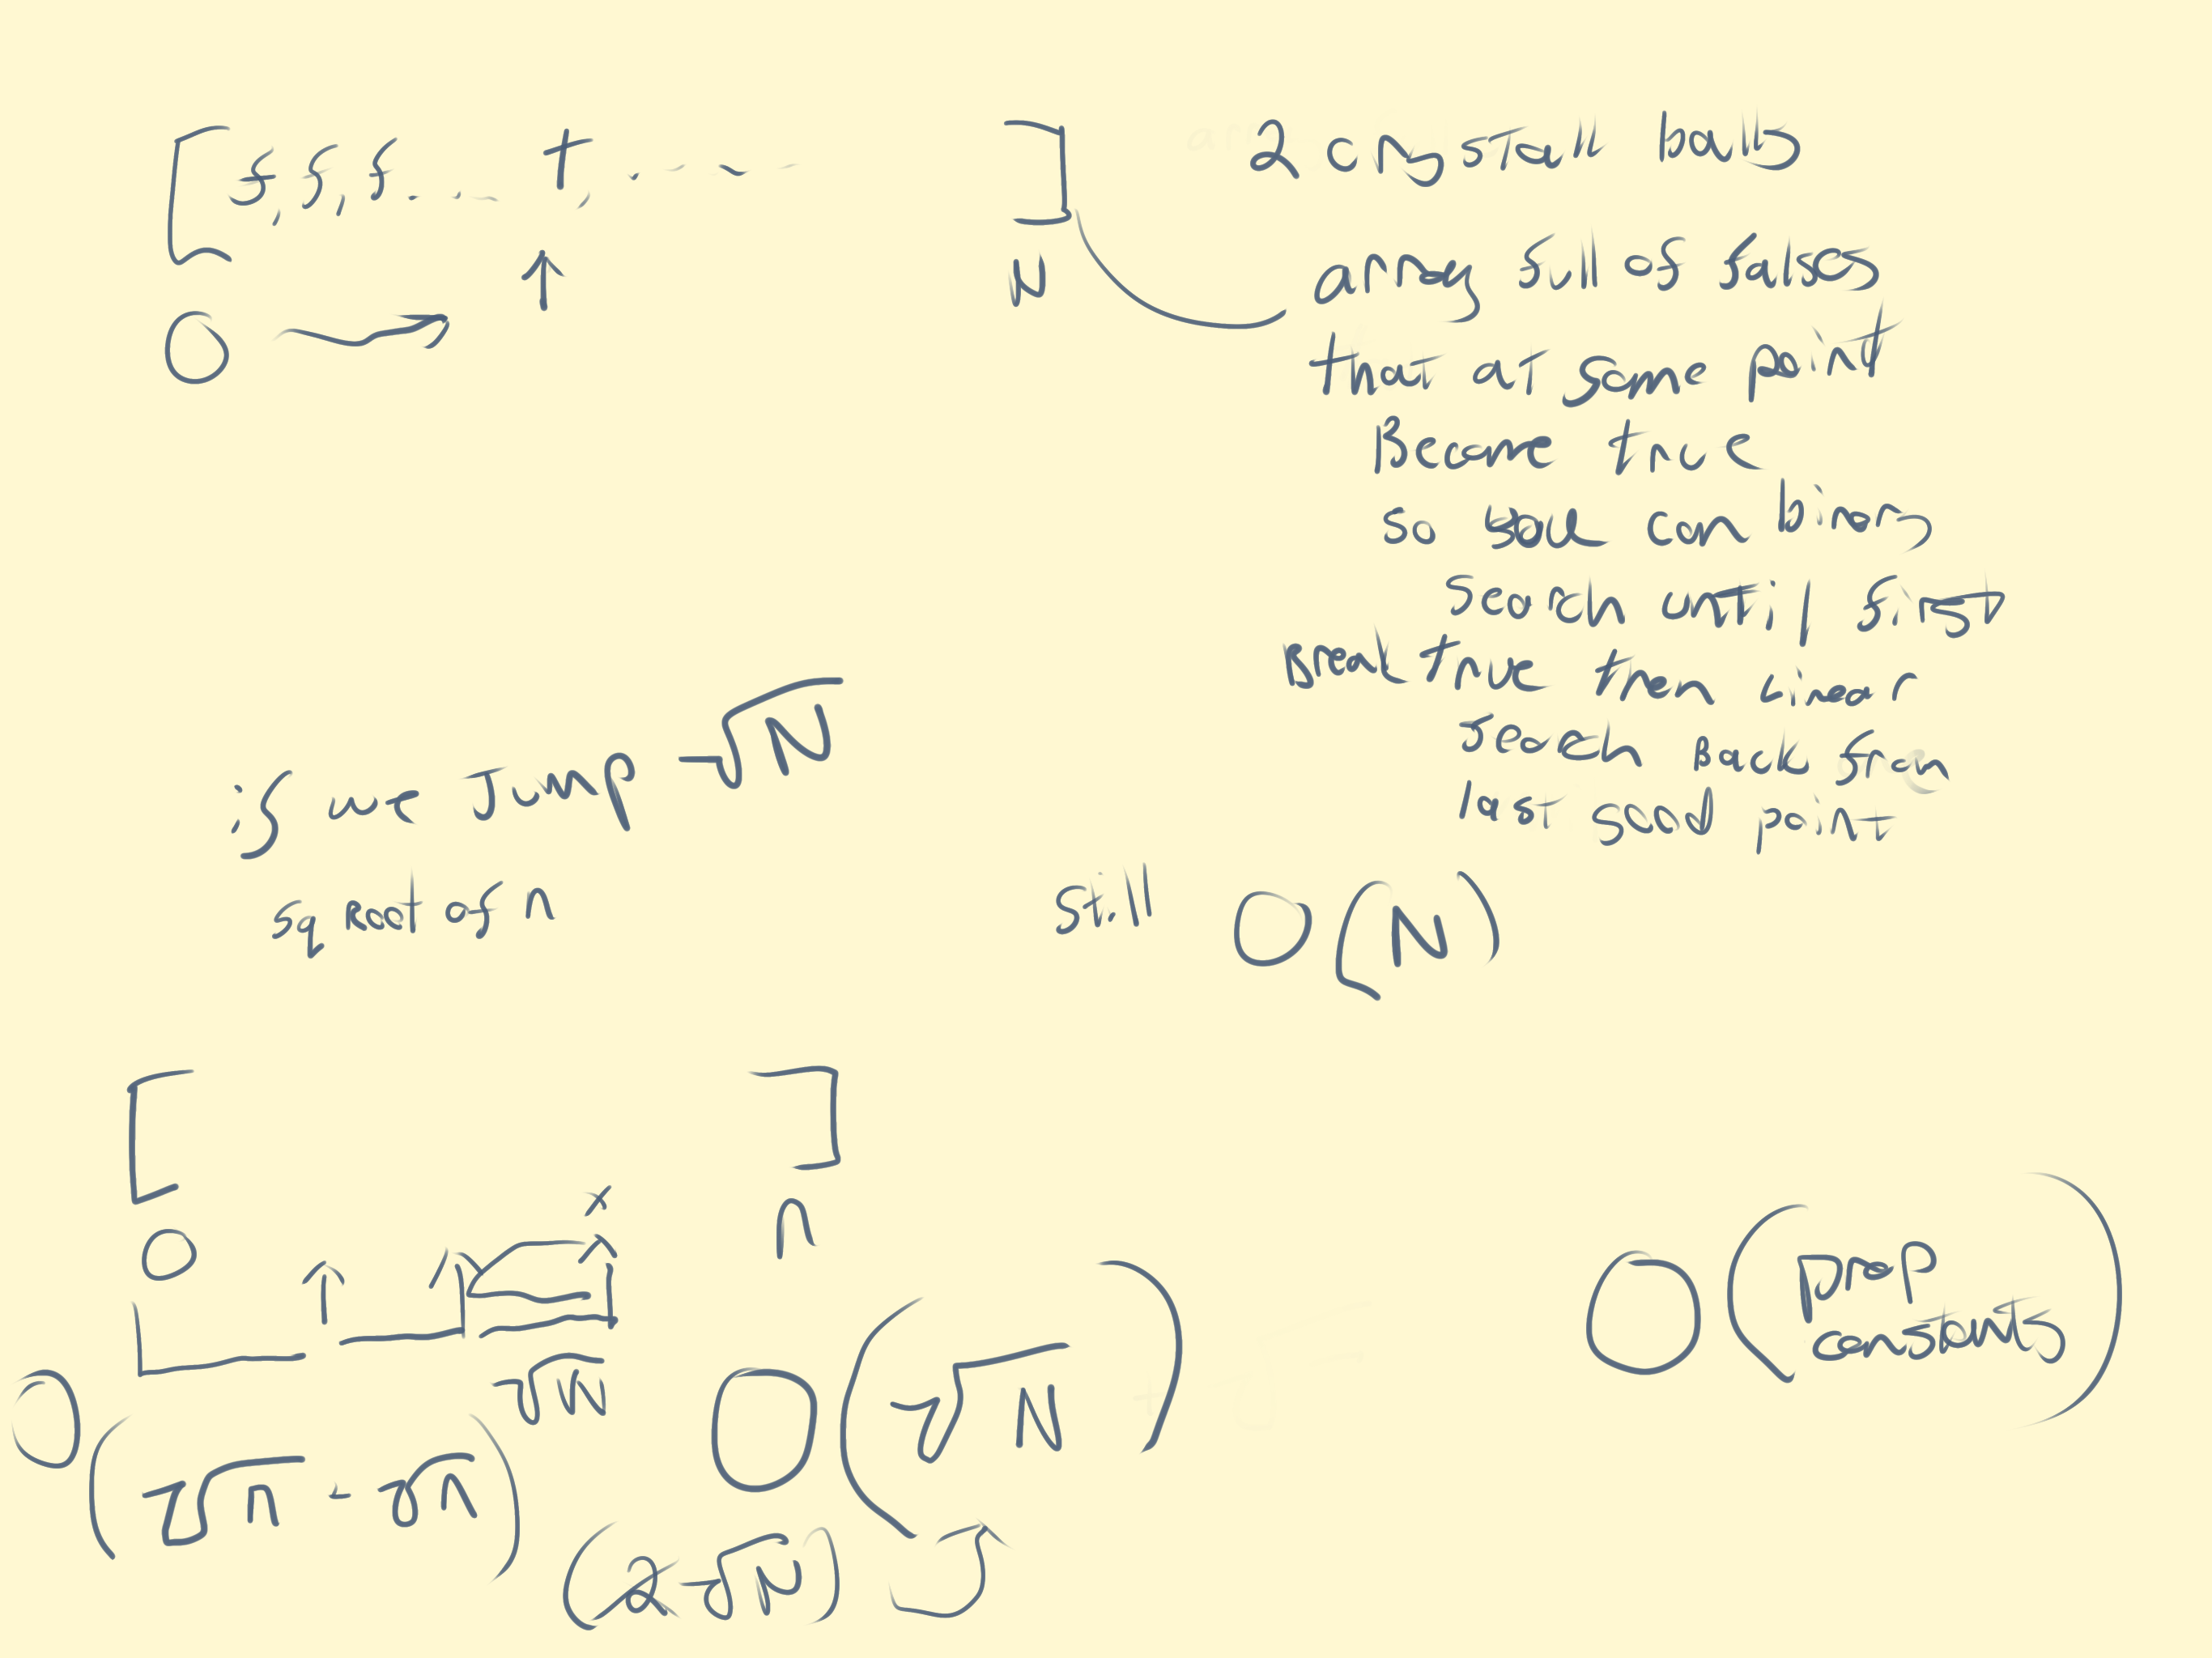 [f, f, f .... t, . - - - ]
0
N
2 crystall balls
array full of falses
that at some point
Become true
so you can binary
search until first
Break true then Linear
search Back from
last good point
if we Jump √N
sq Root of n
still O(N)
[ ]
0
x
n
√N
O(√n - √n)
O(√N)
(2√N)
O(Drop
constants)